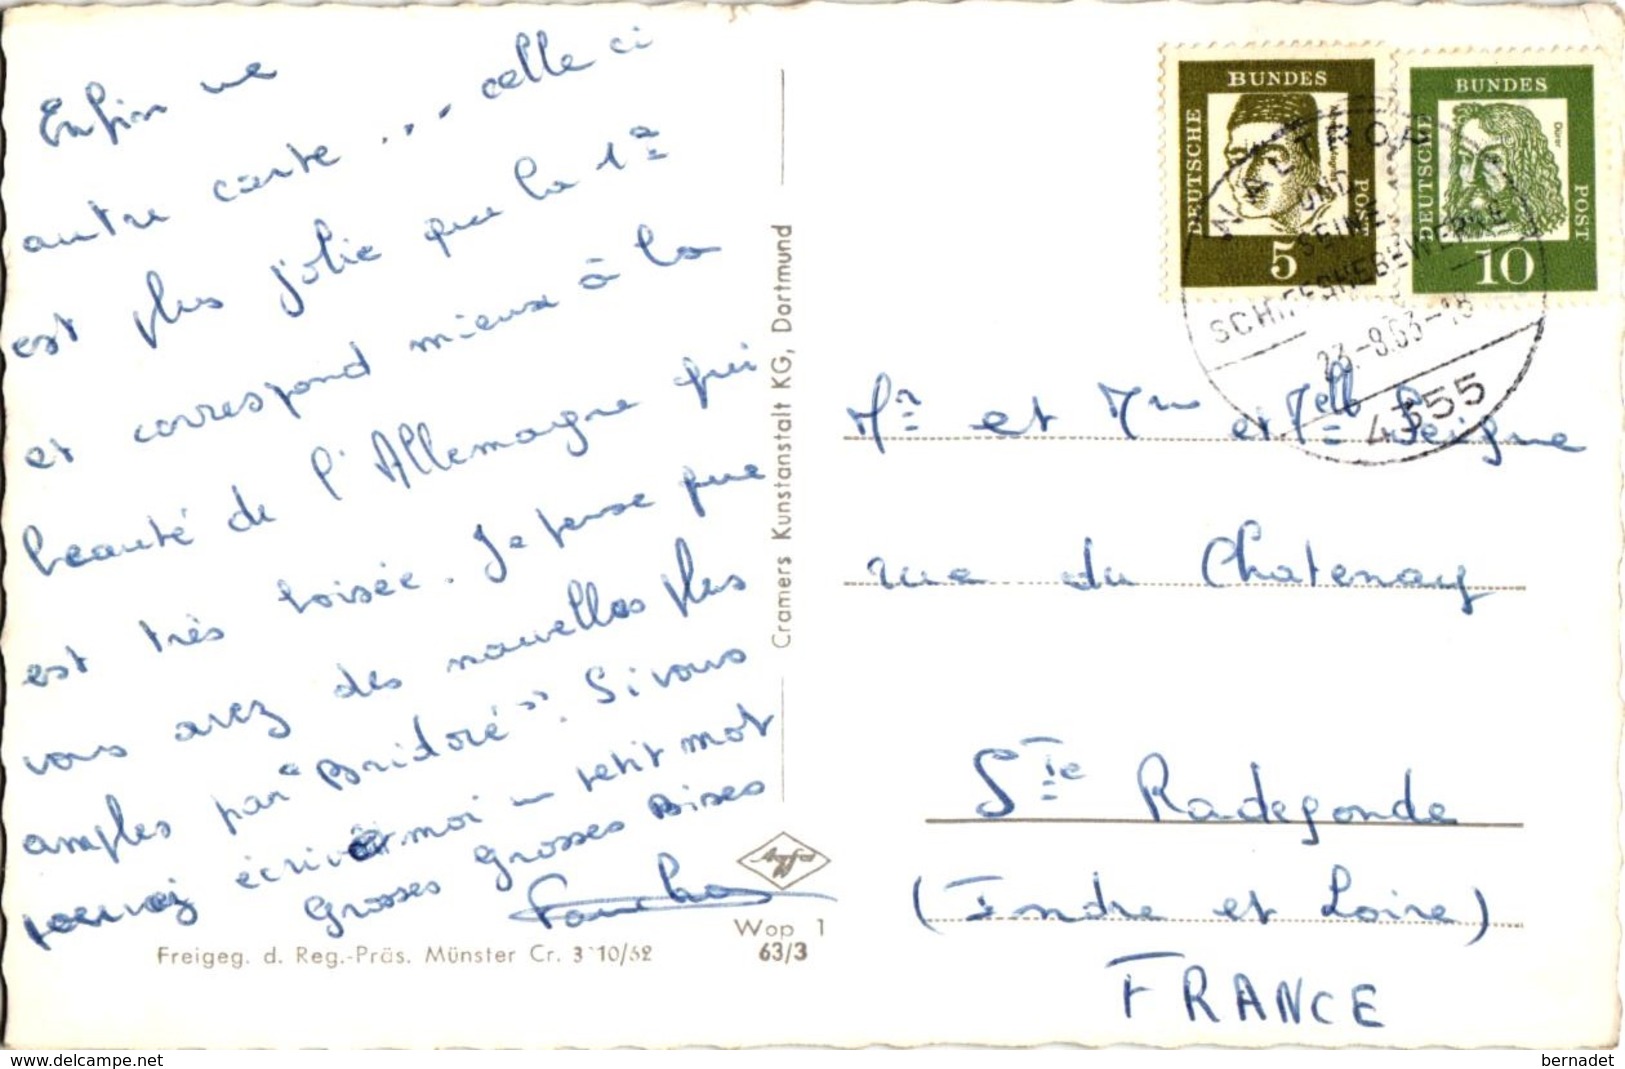 Enfin une
autre carte ... celle ci
est plus jolie que la 1e
et correspond mieux à la
beauté de l'Allemagne qui
est très boisée. Je pense que
vous avez des nouvelles plus
amples par "Bridoré". Si vous
pouvez écrivez moi un petit mot
Grosses Grosses Bises
Freigeg. d. Reg.-Präs. Münster Cr. 3 10/52
Wop 1
63/3
Cramers Kunstanstalt KG, Dortmund
DEUTSCHE BUNDES POST
5
DEUTSCHE BUNDES POST
Dürer
10
WALTROP
UND
SEINE
SCHIFFSHEBEWERKE
23.-8.63-18
4355
Mr et Mme et Melle Seigne
rue du Chatenay
Ste Radegonde
(Indre et Loire)
FRANCE
https://www.delcampe.net
bernadet